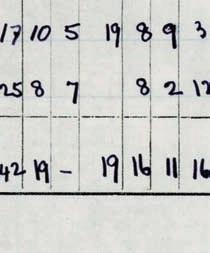 17 10 5 19 8 9 3
25 8 7 8 2 12
42 19 - 19 16 11 16